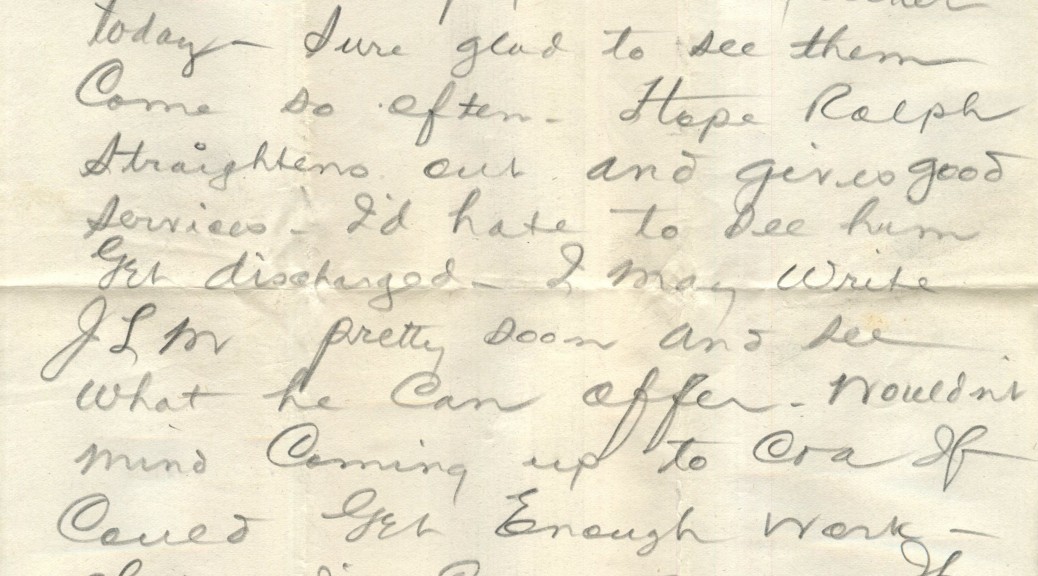 today - Sure glad to see them
Come so often - Hope Ralph
Straightens out and gives good
services - I'd hate to see hum
Get discharged - I may write
JLM pretty soon and see
what he Can offer - Wouldn't
mind Coming up to Cra If
Could Get Enough work -
If